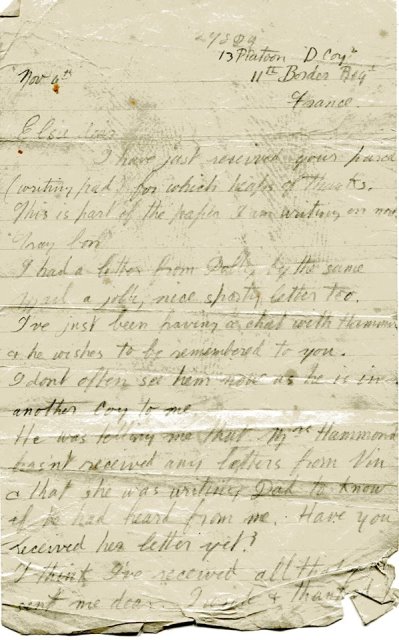 13 Platoon D Coy
Nov 4th 11th Border Regt
France
Elsie dear
I have just received your parcel
(writing pad) for which heaps of thanks.
This is part of the paper I am writing on now
I had a letter from Dolly by the same
mail a jolly nice sporty letter too.
I've just been having a chat with Hammond
& he wishes to be remembered to you.
I dont often see him now as he is in
another coy to me
He was telling me that Mrs Hammond
hasn't received any letters from
& that she was writing Dad to know
if he had heard from me. Have you
received her letter yet?
I think I've received all that
sent me dear. I wrote & thanked